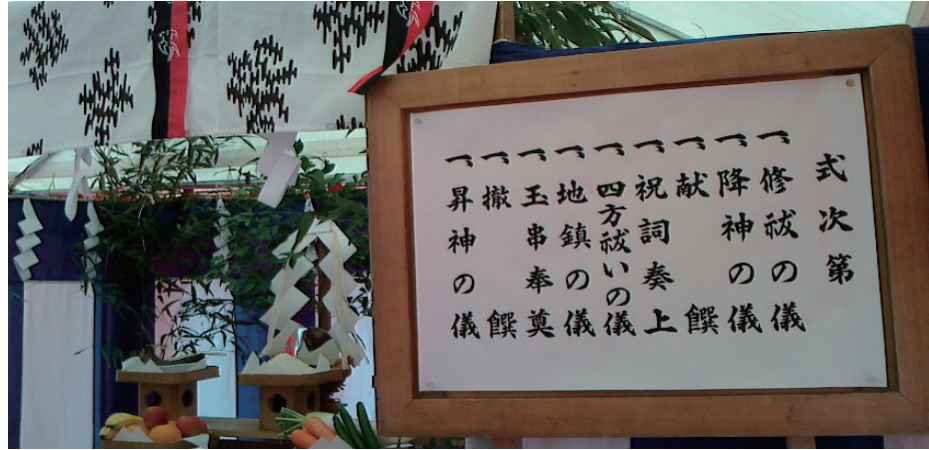 式次第
一、修祓の儀
一、降神の儀
一、献饌
一、祝詞奏上
一、四方祓いの儀
一、地鎮の儀
一、玉串奉奠
一、撤饌
一、昇神の儀